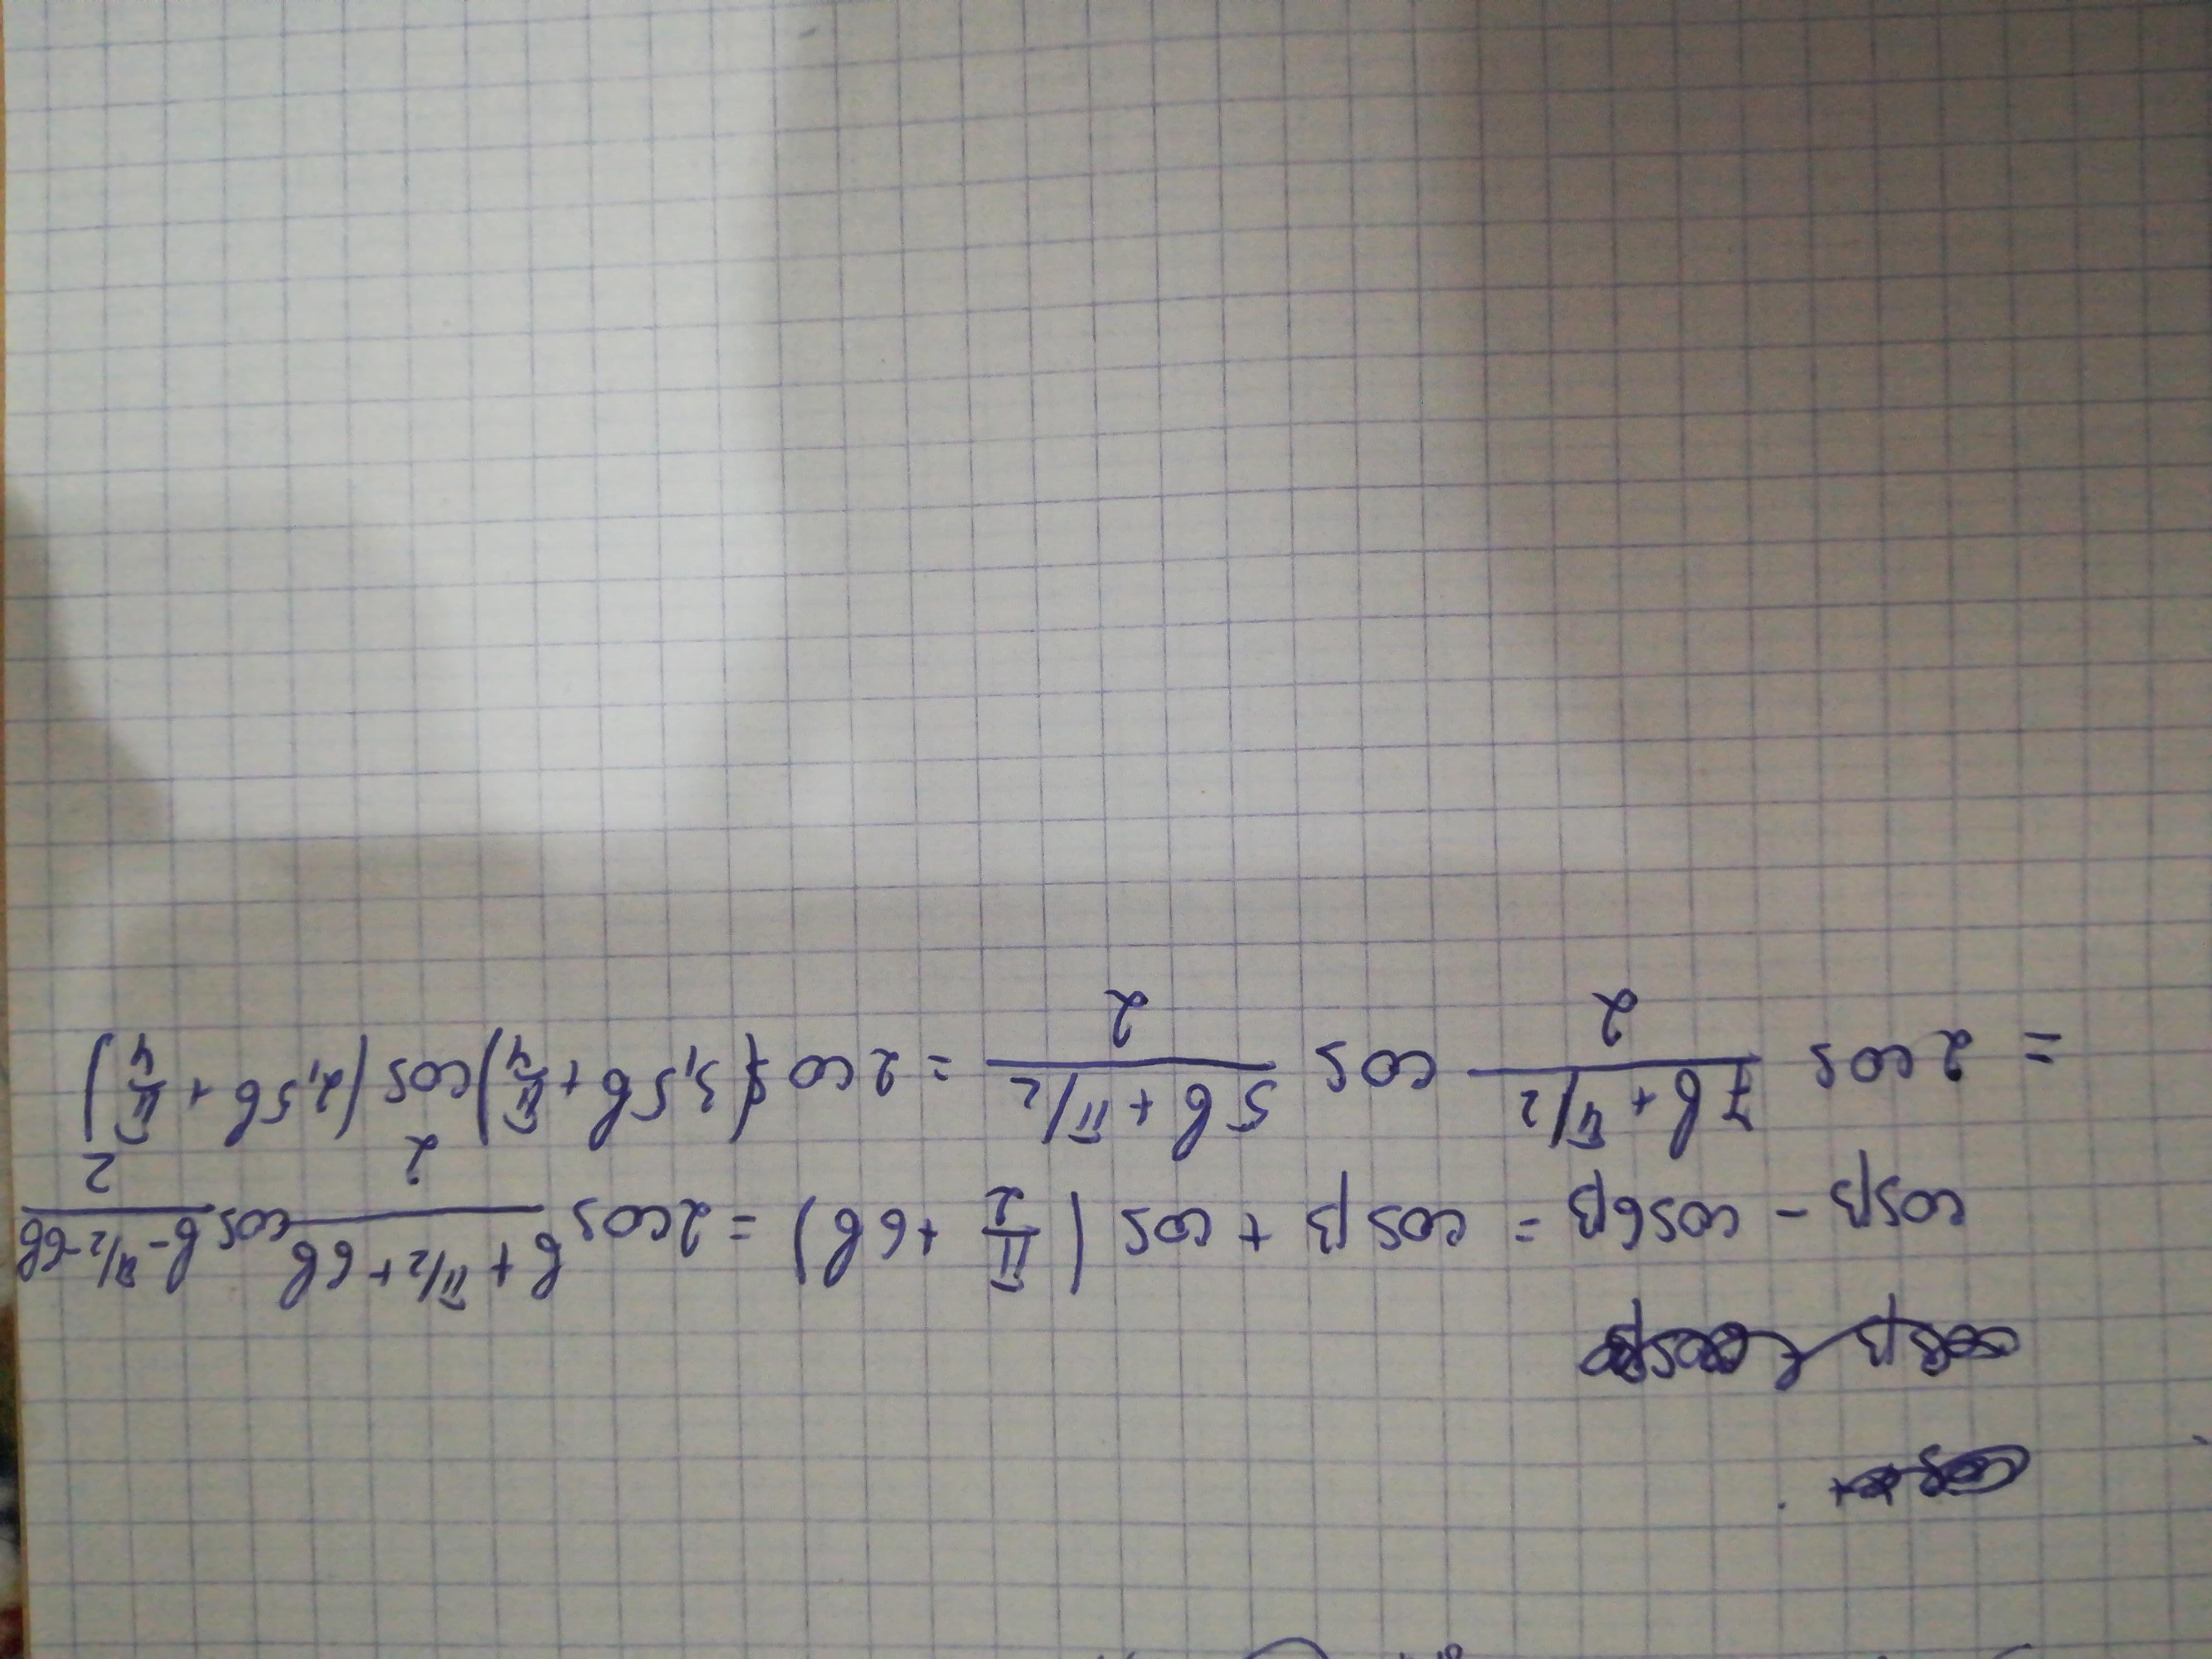 cosβ - cos6β = cosβ + cos(π/2 + 6β) = 2cos (β + π/2 + 6β)/2 cos (β - π/2 - 6β)/2
= 2cos (7β + π/2)/2 cos (5β + π/2)/2 = 2cos(3,5β + π/4)cos(2,5β + π/4)